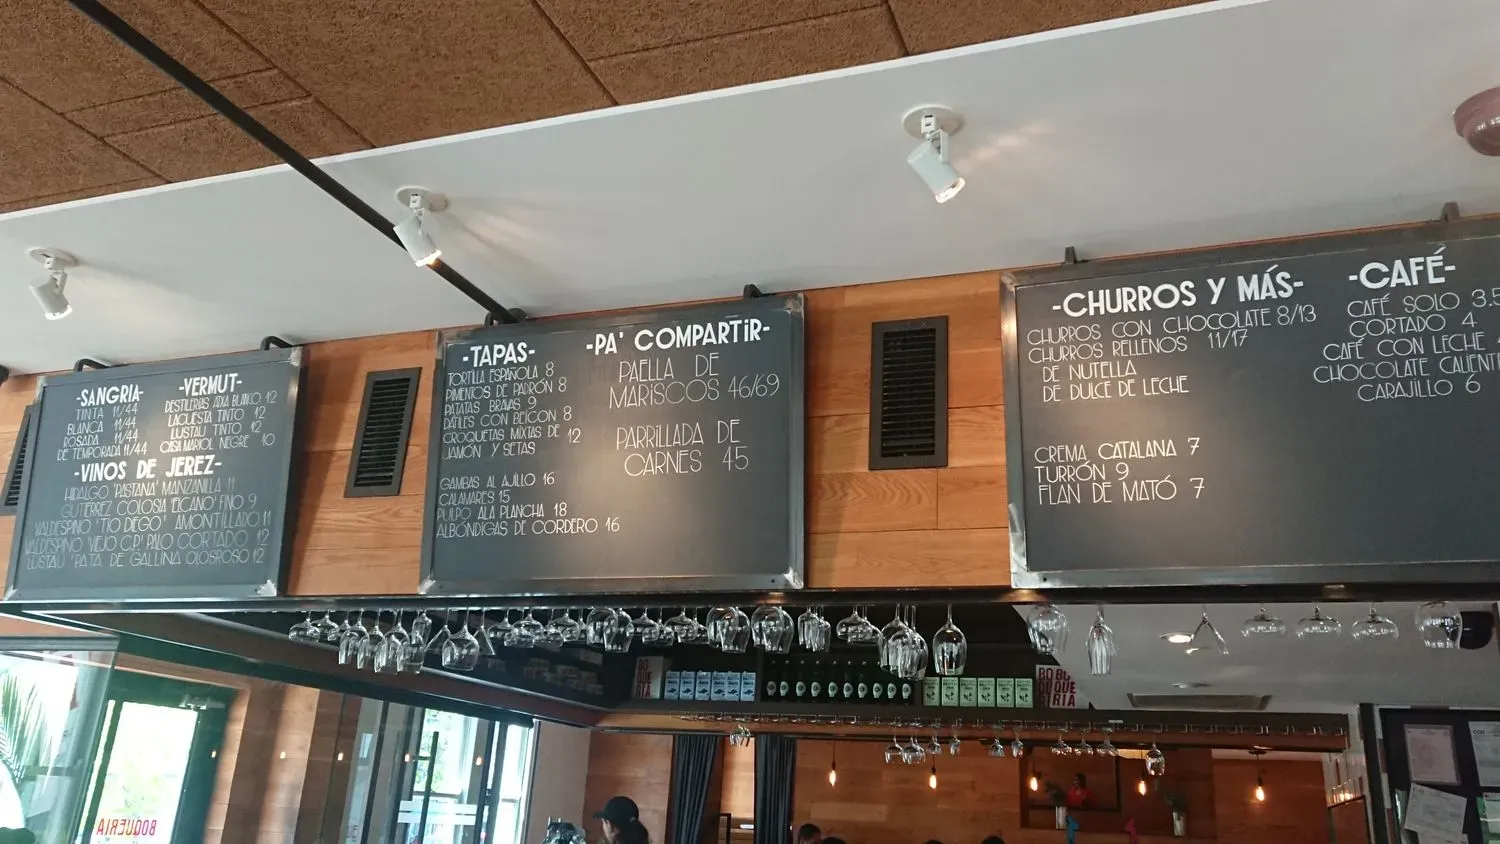 -SANGRIA-
TINTA 11/44
BLANCA 11/44
ROSADA 11/44
DE TEMPORADA 11/44
-VERMUT-
BLANCO 12
LACUESTA TINTO 12
LUSTAU TINTO 12
CASA MARIOL NEGRE 10
-VINOS DE JEREZ-
HIDALGO 'PASTANA' MANZANILLA 11
GUTIÉRREZ COLOSIA 'ELCANO' FINO 9
VALDESPINO 'TIO DIEGO' AMONTILLADO 11
VALDESPINO 'VIEJO C.P.' PALO CORTADO 12
LUSTAU 'PATA DE GALLINA OLOSROSO 12
-TAPAS-
TORTILLA ESPAÑOLA 8
PIMENTOS DE PADRÓN 8
PATATAS BRAVAS 9
DÁTILES CON BEICON 8
CROQUETAS MIXTAS DE 12
JAMÓN Y SETAS
GAMBAS AL AJILLO 16
CALAMARES 15
PULPO A LA PLANCHA 18
ALBÓNDIGAS DE CORDERO 16
-PA' COMPARTIR-
PAELLA DE
MARISCOS 46/69
PARRILLADA DE
CARNES 45
-CHURROS Y MÁS-
CHURROS CON CHOCOLATE 8/13
CHURROS RELLENOS 11/17
DE NUTELLA
DE DULCE DE LECHE
CREMA CATALANA 7
TURRÓN 9
FLAN DE MATÓ 7
-CAFÉ-
CAFÉ SOLO 3.5
CORTADO 4
CAFÉ CON LECHE
CHOCOLATE CALIENT
CARAJILLO 6
BO
QUE
RIA
BO
QUE
RIA
BOQUERIA